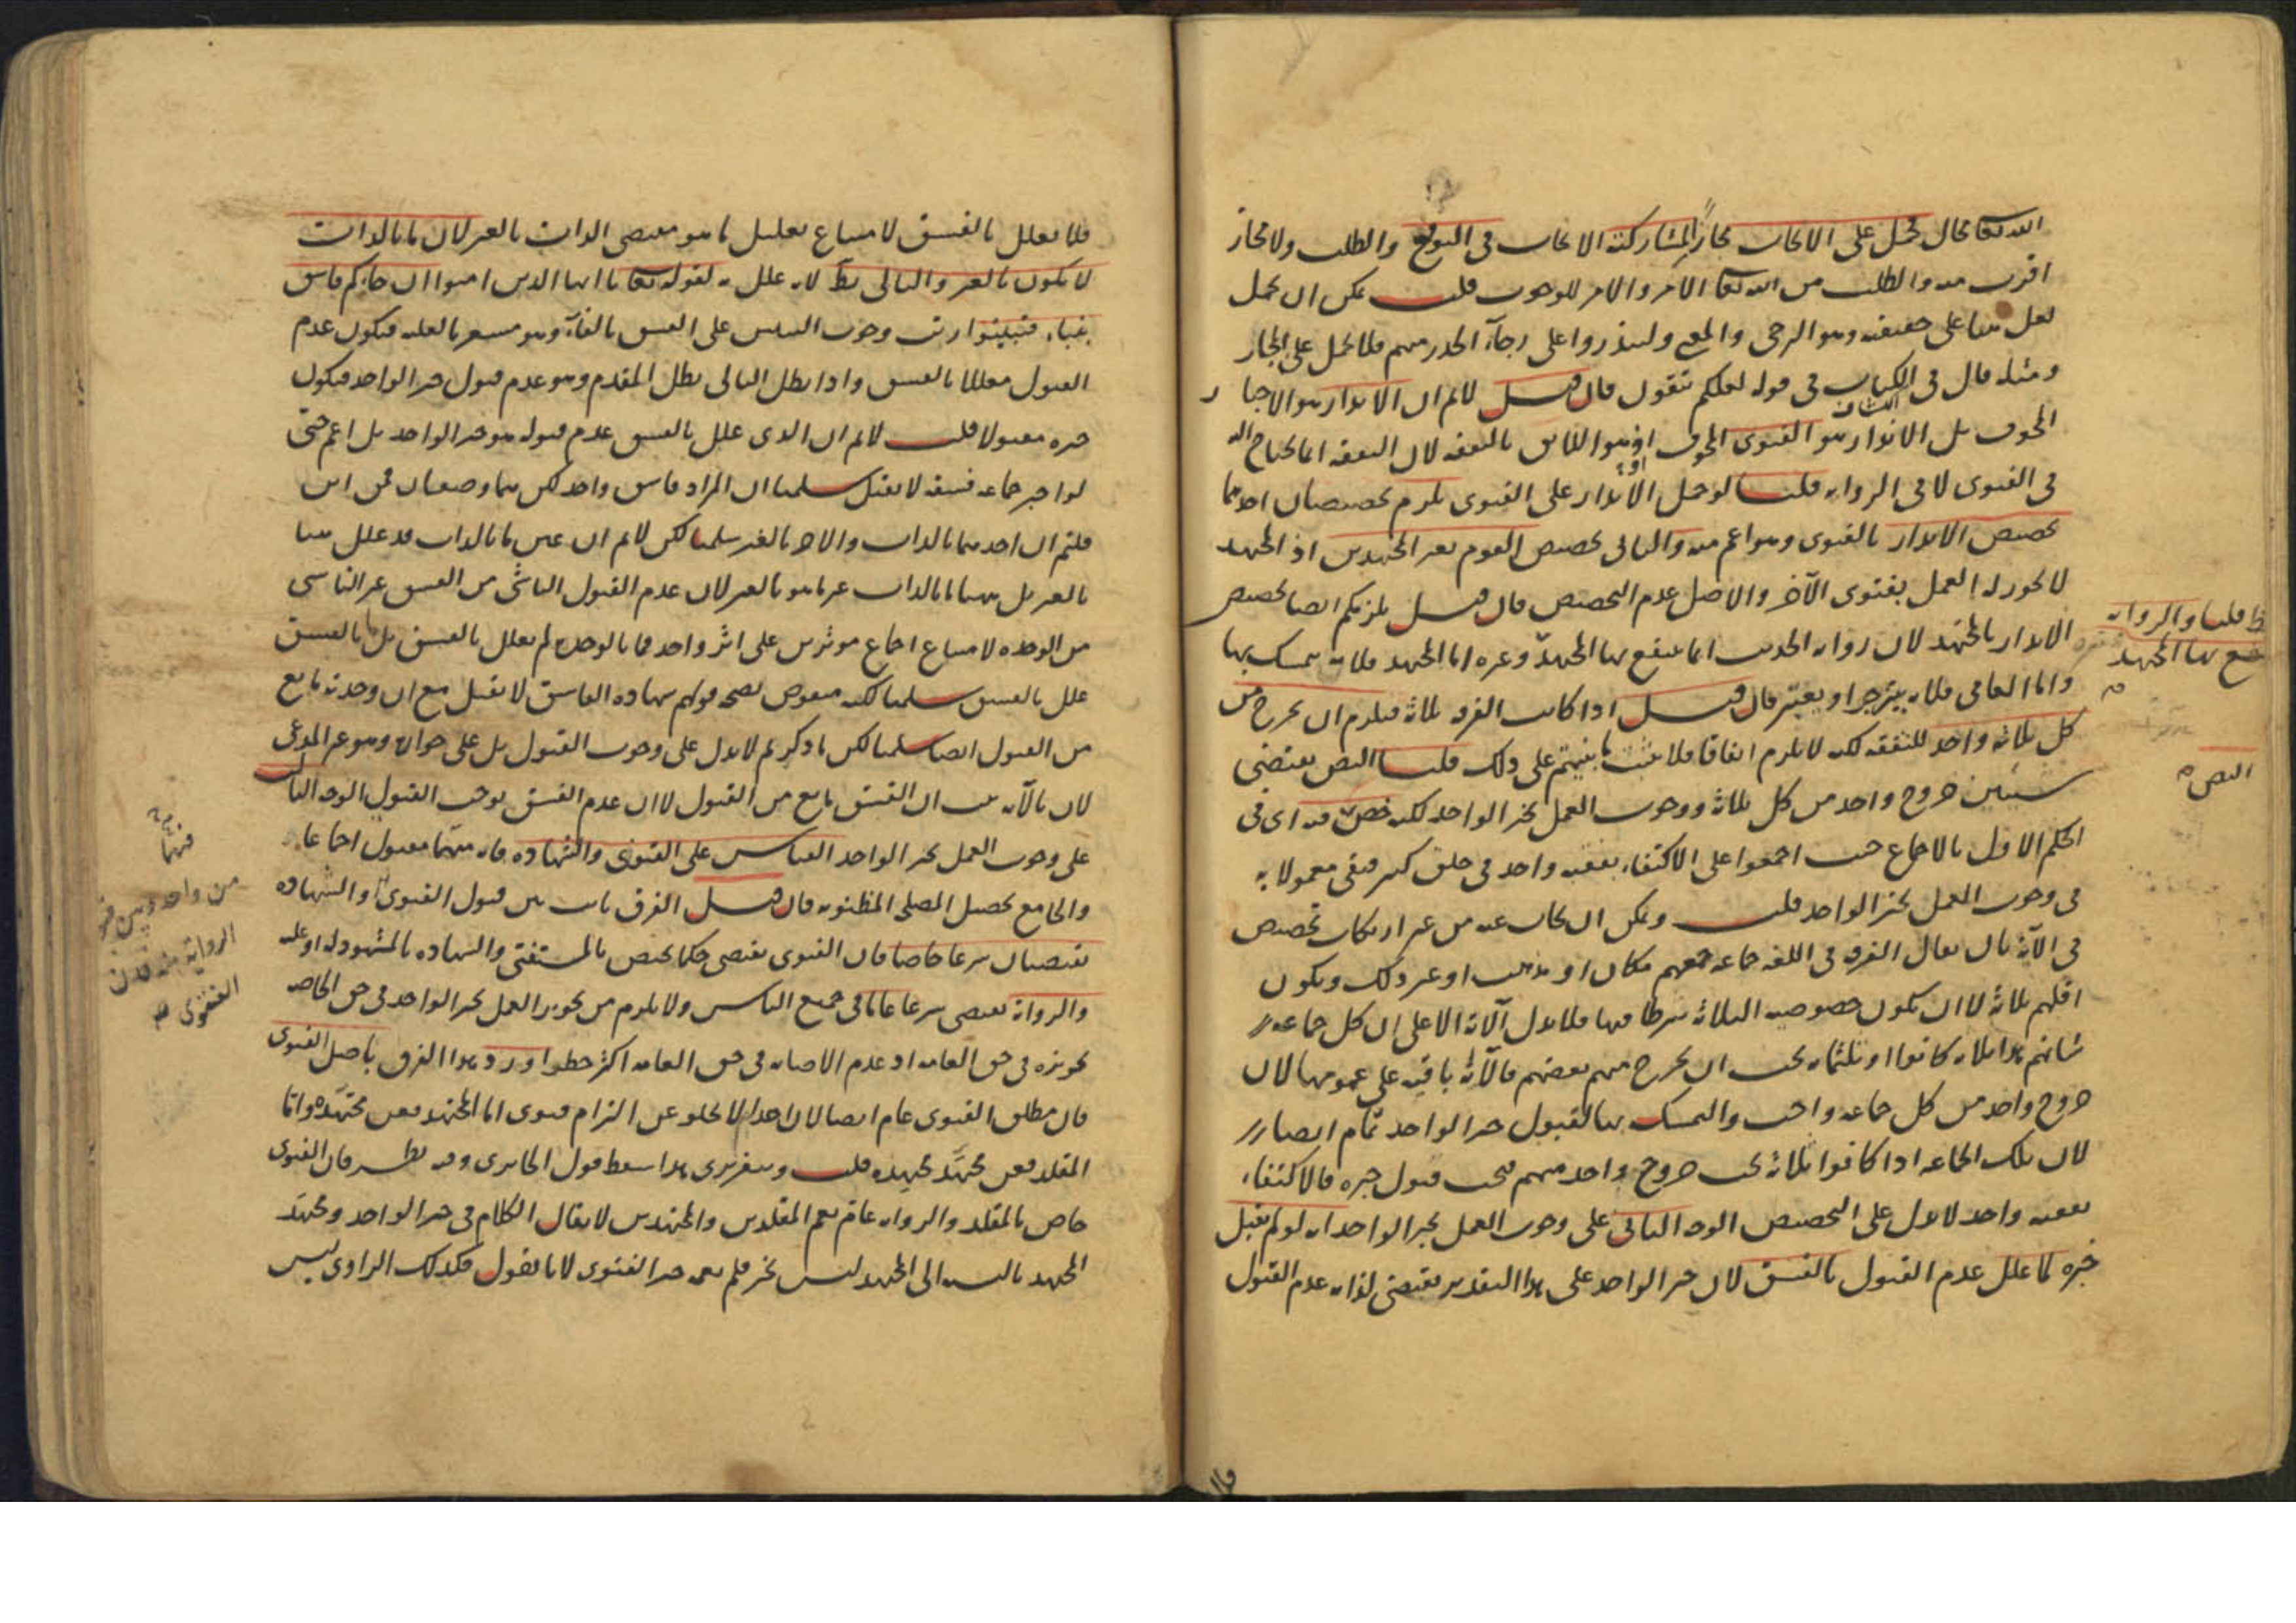 الله تعالى محال حمل على الايجاب مجازا لمشاركته الايجاب فى التوقع والطلب ولا مجاز
اقرب منه والطلب من الله تعالى الامر والامر للوجوب قلت يمكن ان يحمل
لعل هنا على حقيقته وهو الترجى والمعنى ولينذروا على رجاء الحذر منهم فلا يحمل على المجاز
ومثله قال فى الكتاب فى قوله لعلكم تتقون فان قيل لا نم ان الانذار هو الاخبار
المخوف بل الانذار هو الفتوى المخوف اذ هو اللائق بالتفقه لان التفقه انما يحتاج اليه
فى الفتوى لا فى الرواية قلنا لو حمل الانذار على الفتوى يلزم تخصيصان احدهما
تخصيص الانذار بالفتوى وهو اعم منه والثانى تخصيص القوم بغير المجتهدين اذ المجتهد
لا يجوز له العمل بفتوى الآخر والاصل عدم التخصيص فان قيل يلزمكم ايضا تخصيص
الانذار بالمجتهد لان رواية الحديث انما ينتفع بها المجتهد وغيره اما المجتهد فلانه يتمسك بها
واما العامى فلانه ينزجر او يعتبر فان قيل اذا كانت الفرقة ثلاثة فيلزم ان يخرج من
كل ثلاثة واحد للتفقه لكنه لا يلزم اتفاقا فلا يثبت ما بنيتم على ذلك قلنا النص يقتضى
شيئين خروج واحد من كل ثلاثة ووجوب العمل بخبر الواحد لكنه خص فيه اى فى
الحكم الاول بالاجماع حيث اجمعوا على الاكتفاء بفقيه واحد فى خلق كثير فبقى معمولا به
فى وجوب العمل بخبر الواحد قلت ويمكن ان يجاب عنه من غير ارتكاب تخصيص
فى الآية بان يقال الفرقة فى اللغة جماعة جمعهم مكان او مذهب او غير ذلك ويكون
اقلهم ثلاثة لا ان يكون خصوصية الثلاثة شرطا فيها فلا يدل الآية الا على ان كل جماعة
شانهم هذا ثلاثة كانوا او ثلثمائة يجب ان يخرج منهم بعضهم فالآية باقية على عمومها لان
خروج واحد من كل جماعة واجب والتمسك بها لقبول خبر الواحد تمام ايضا
لان تلك الجماعة اذا كانوا ثلاثة يجب خروج واحد منهم فيجب قبول خبره فالاكتفاء
بفقيه واحد لا يدل على التخصيص الوجه الثانى على وجوب العمل بخبر الواحد انه لو لم يقبل
خبره لما علل عدم القبول بالفسق لان خبر الواحد على هذا التقدير يقتضى لذاته عدم القبول
قلنا والرواية
ينتفع بها المجتهد
النص
فلا يعلل بالفسق لامتناع تعليل ما هو مقتضى الذات بالغير لان ما بالذات
لا يكون بالغير والتالى بط لانه علل به لقوله تعالى يا ايها الذين امنوا ان جاءكم فاسق
بنباء فتبينوا رتب وجوب التبين على الفسق بالفاء وهو مشعر بالعلية فيكون عدم
القبول معللا بالفسق واذا بطل التالى بطل المقدم وهو عدم قبول خبر الواحد فيكون
خبره مقبولا قلت لا نم ان الذى علل بالفسق عدم قبوله هو خبر الواحد بل اعم حتى
لو اخبر جماعة فسقة لا يقبل سلمنا ان المراد فاسق واحد لكن هنا وصفان فمن اين
قلتم ان احدهما بالذات والآخر بالغير سلمنا لكن لا نم ان عين ما بالذات قد علل هنا
بالغير بل هنا ما بالذات غير ما هو بالغير لان عدم القبول الناشى من الفسق غير الناشى
من الوحدة لامتناع اجتماع موثرين على اثر واحد فما بالوحدة لم يعلل بالفسق بل ما بالفسق
علل بالفسق سلمنا لكنه منقوض بصحة قولهم شهادة الفاسق لا تقبل مع ان وحدته مانع
من القبول ايضا سلمنا لكن ما ذكرتم لا يدل على وجوب القبول بل على جوازه وهو غير المدعى
لان بالآية يثبت ان الفسق مانع من القبول لا ان عدم الفسق يوجب القبول الوجه الثالث
على وجوب العمل بخبر الواحد القياس على الفتوى والشهادة فانه منهما مقبول اجماعا
والجامع تحصيل المصلحة المظنونة فان قيل الفرق ثابت بين قبول الفتوى والشهادة
يقتضيان شرعا خاصا فان الفتوى يقتضى حكما يختص بالمستفتى والشهادة بالمشهود له او عليه
والرواية يقتضى شرعا عاما فى جميع الناس ولا يلزم من تجويز العمل بخبر الواحد فى حق الخاصة
تجويزه فى حق العامة اذ عدم الاصابة فى حق العامة اكثر خطرا ورد هذا الفرق باصل الفتوى
فان مطلق الفتوى عام ايضا لان احدا لا يخلو عن التزام فتوى اما المجتهد فعن مجتهده واما
المقلد فعن مجتهد مجتهده قلت وبتقريرى هذا سقط قول الجابردى وفيه نظر فان الفتوى
خاص بالمقلد والرواية عام يعم المقلدين والمجتهدين لا يقال الكلام فى خبر الواحد ومجتهد
المجتهد بالنسبة الى المجتهد ليس بخبر فلم يعمه خبر الفتوى لانا نقول فكذلك الراوى ليس
فيهما
من واحد وبين
الرواية
الفتوى